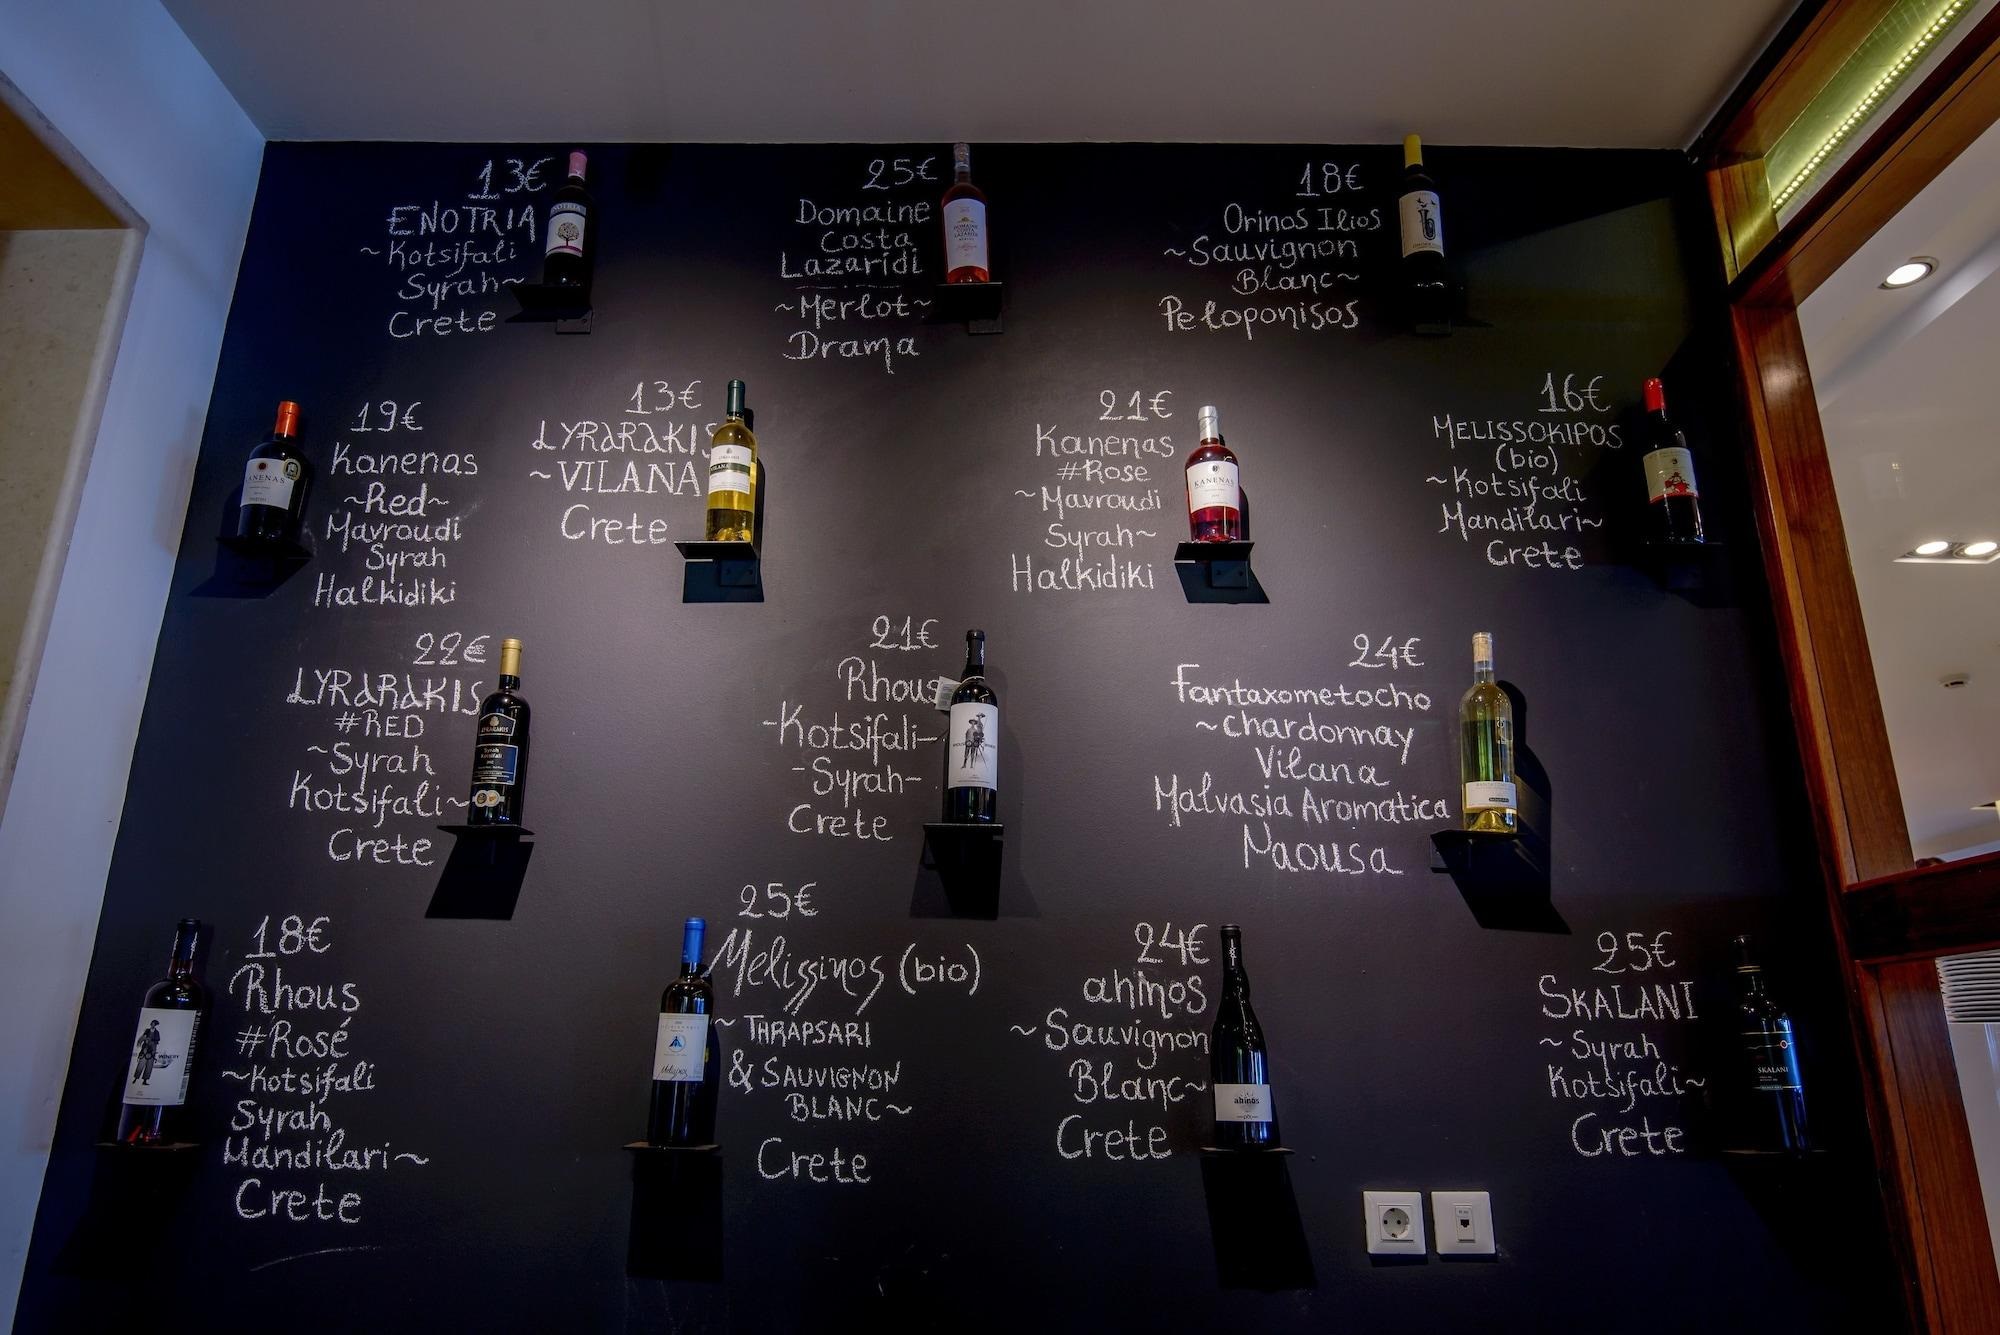 13€
ENOTRIA
~Kotsifali
Syrah~
Crete
25€
Domaine
Costa
Lazaridi
~Merlot~
Drama
18€
Orinos Ilios
~Sauvignon
Blanc~
Peloponisos
19€
Kanenas
~Red~
Mavroudi
Syrah
Halkidiki
KANENAS
13€
LYRARAKIS
~VILANA
Crete
21€
Kanenas
#Rose
~Mavroudi
Syrah~
Halkidiki
KANENAS
16€
MELISSOKIPOS
(bio)
~Kotsifali
Mandilari~
Crete
22€
LYRARAKIS
#RED
~Syrah
Kotsifali~
Crete
LYRARAKIS
Syrah
Kotsifali
21€
Rhous
-Kotsifali-
-Syrah-
Crete
24€
Fantaxometocho
~chardonnay
Vilana
Malvasia Aromatica
Naousa
18€
Rhous
#Rosé
~Kotsifali
Syrah
Mandilari~
Crete
WINERY
25€
Melissinos (bio)
~THRAPSARI
& SAUVIGNON
BLANC~
Crete
24€
ahinos
~Sauvignon
Blanc~
Crete
ahinos
25€
SKALANI
~Syrah
Kotsifali~
Crete
SKALANI